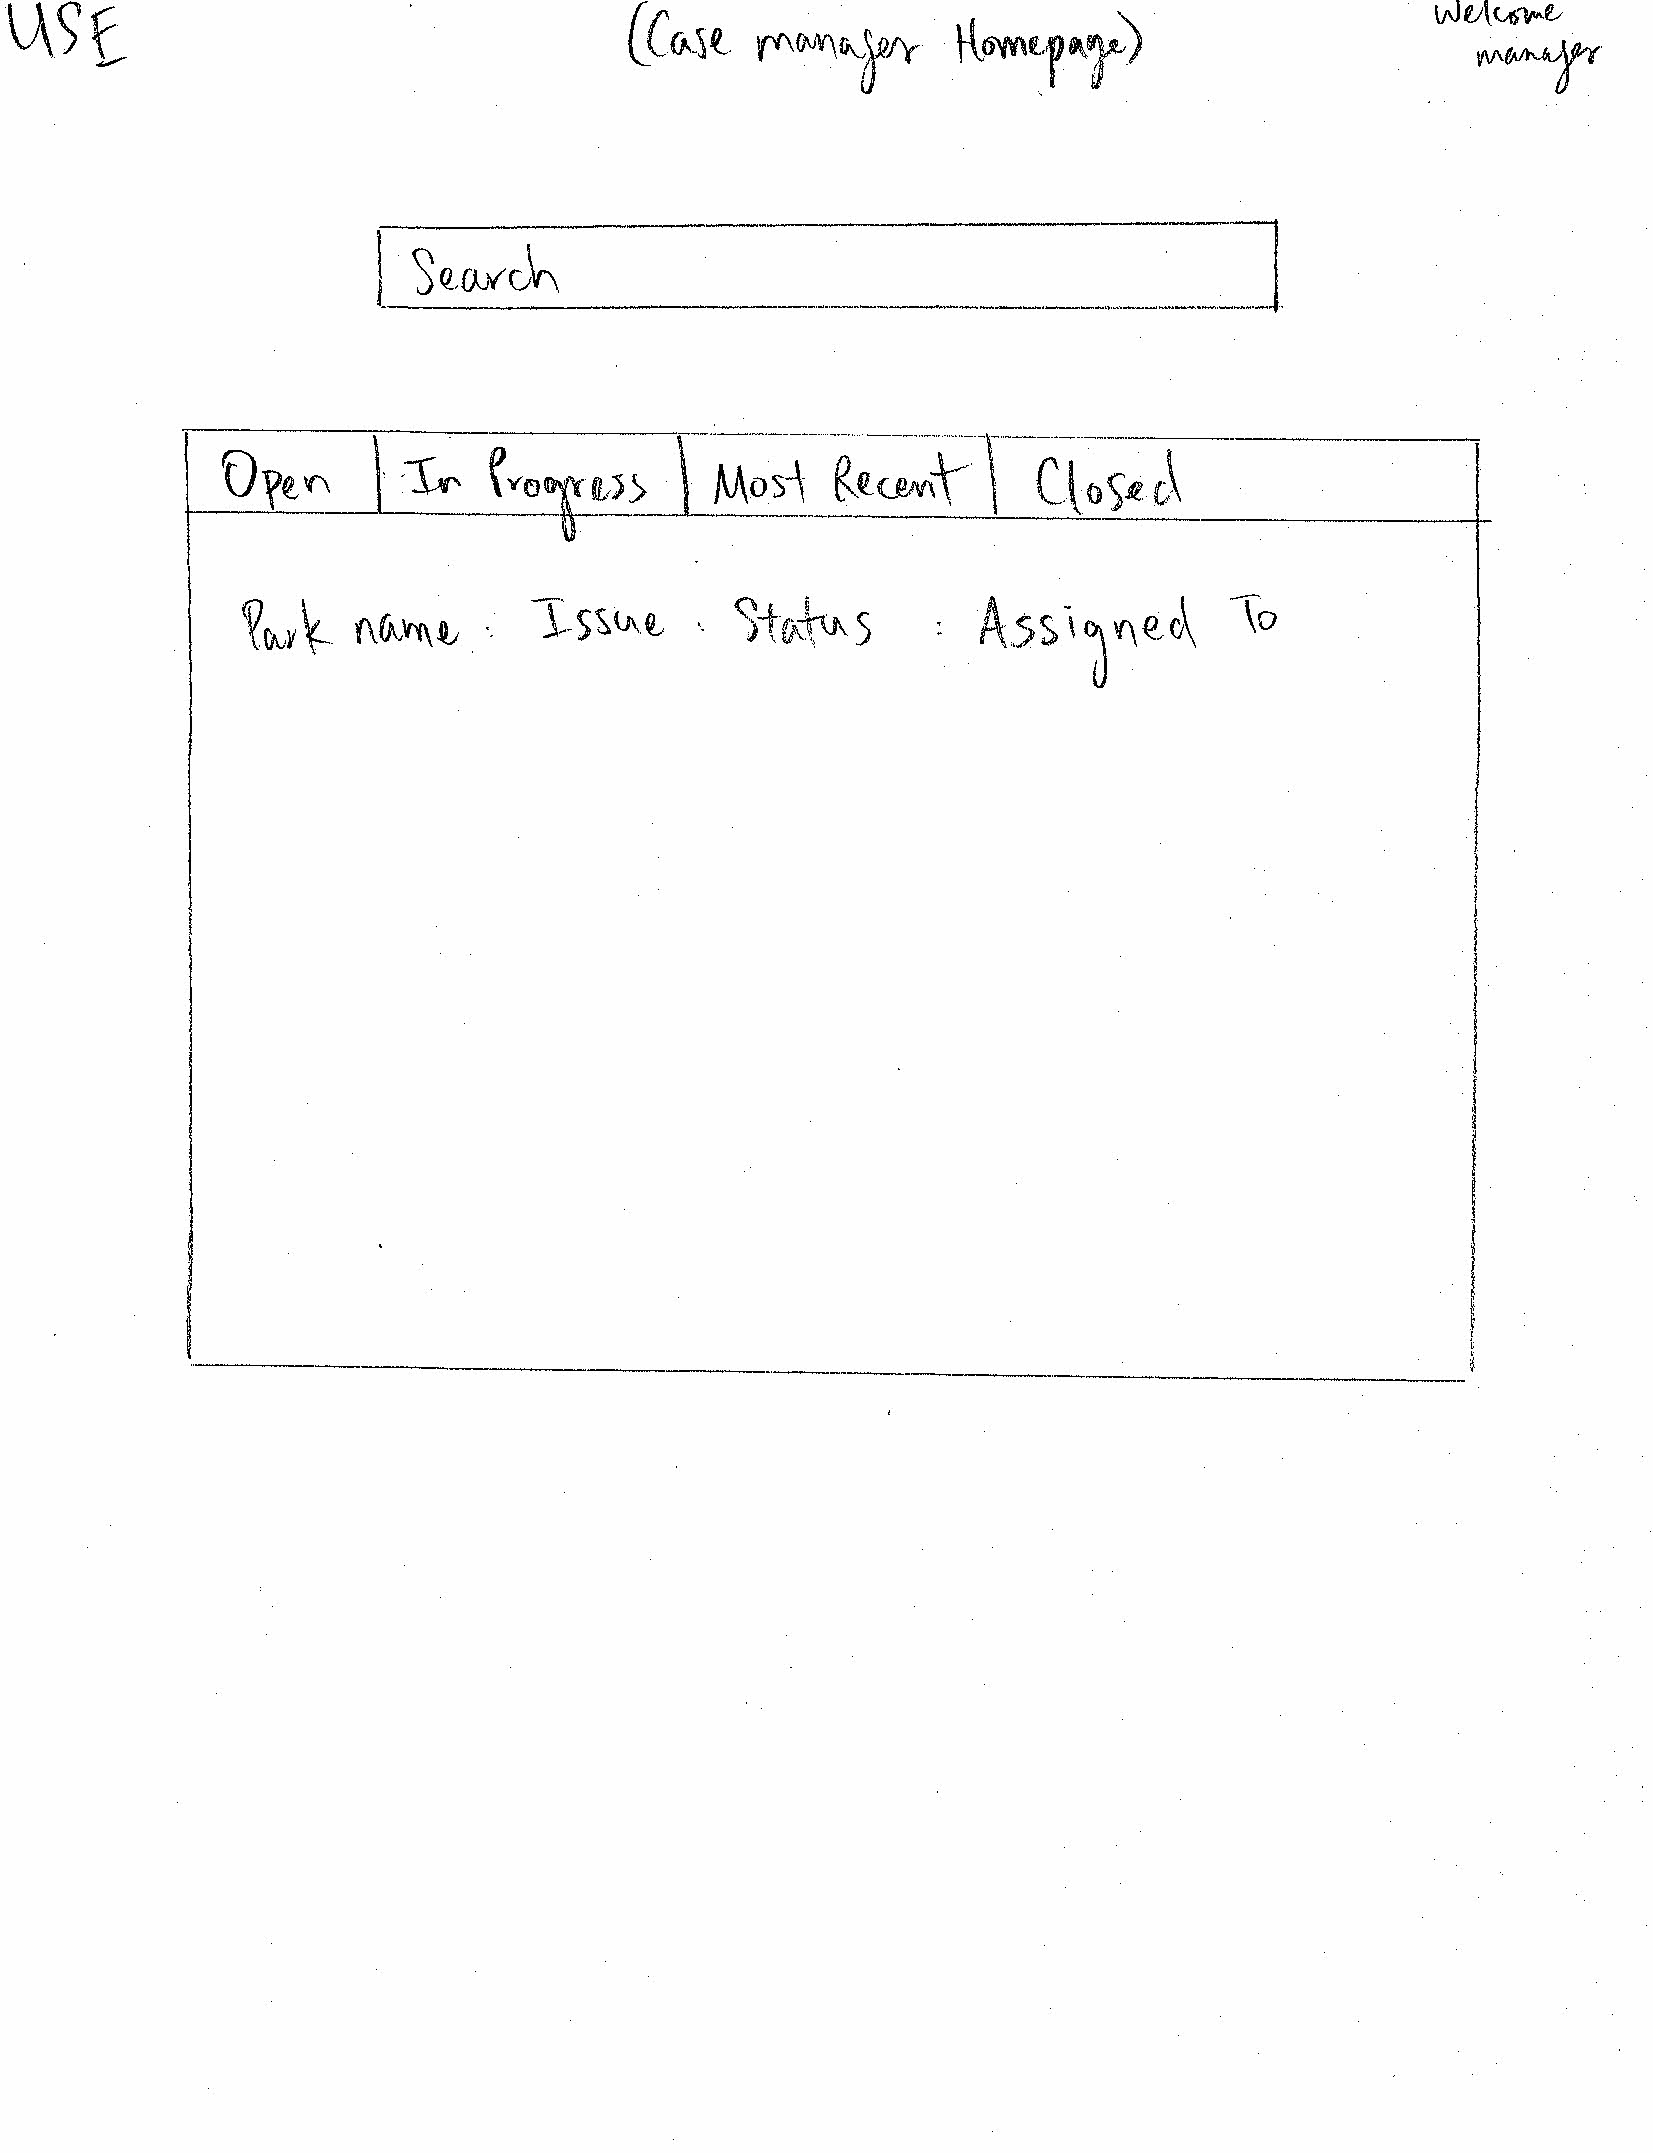 USE
(Case manager Homepage)
Welcome
manager
Search
Open | In Progress | Most Recent | Closed
Park name : Issue : Status : Assigned To